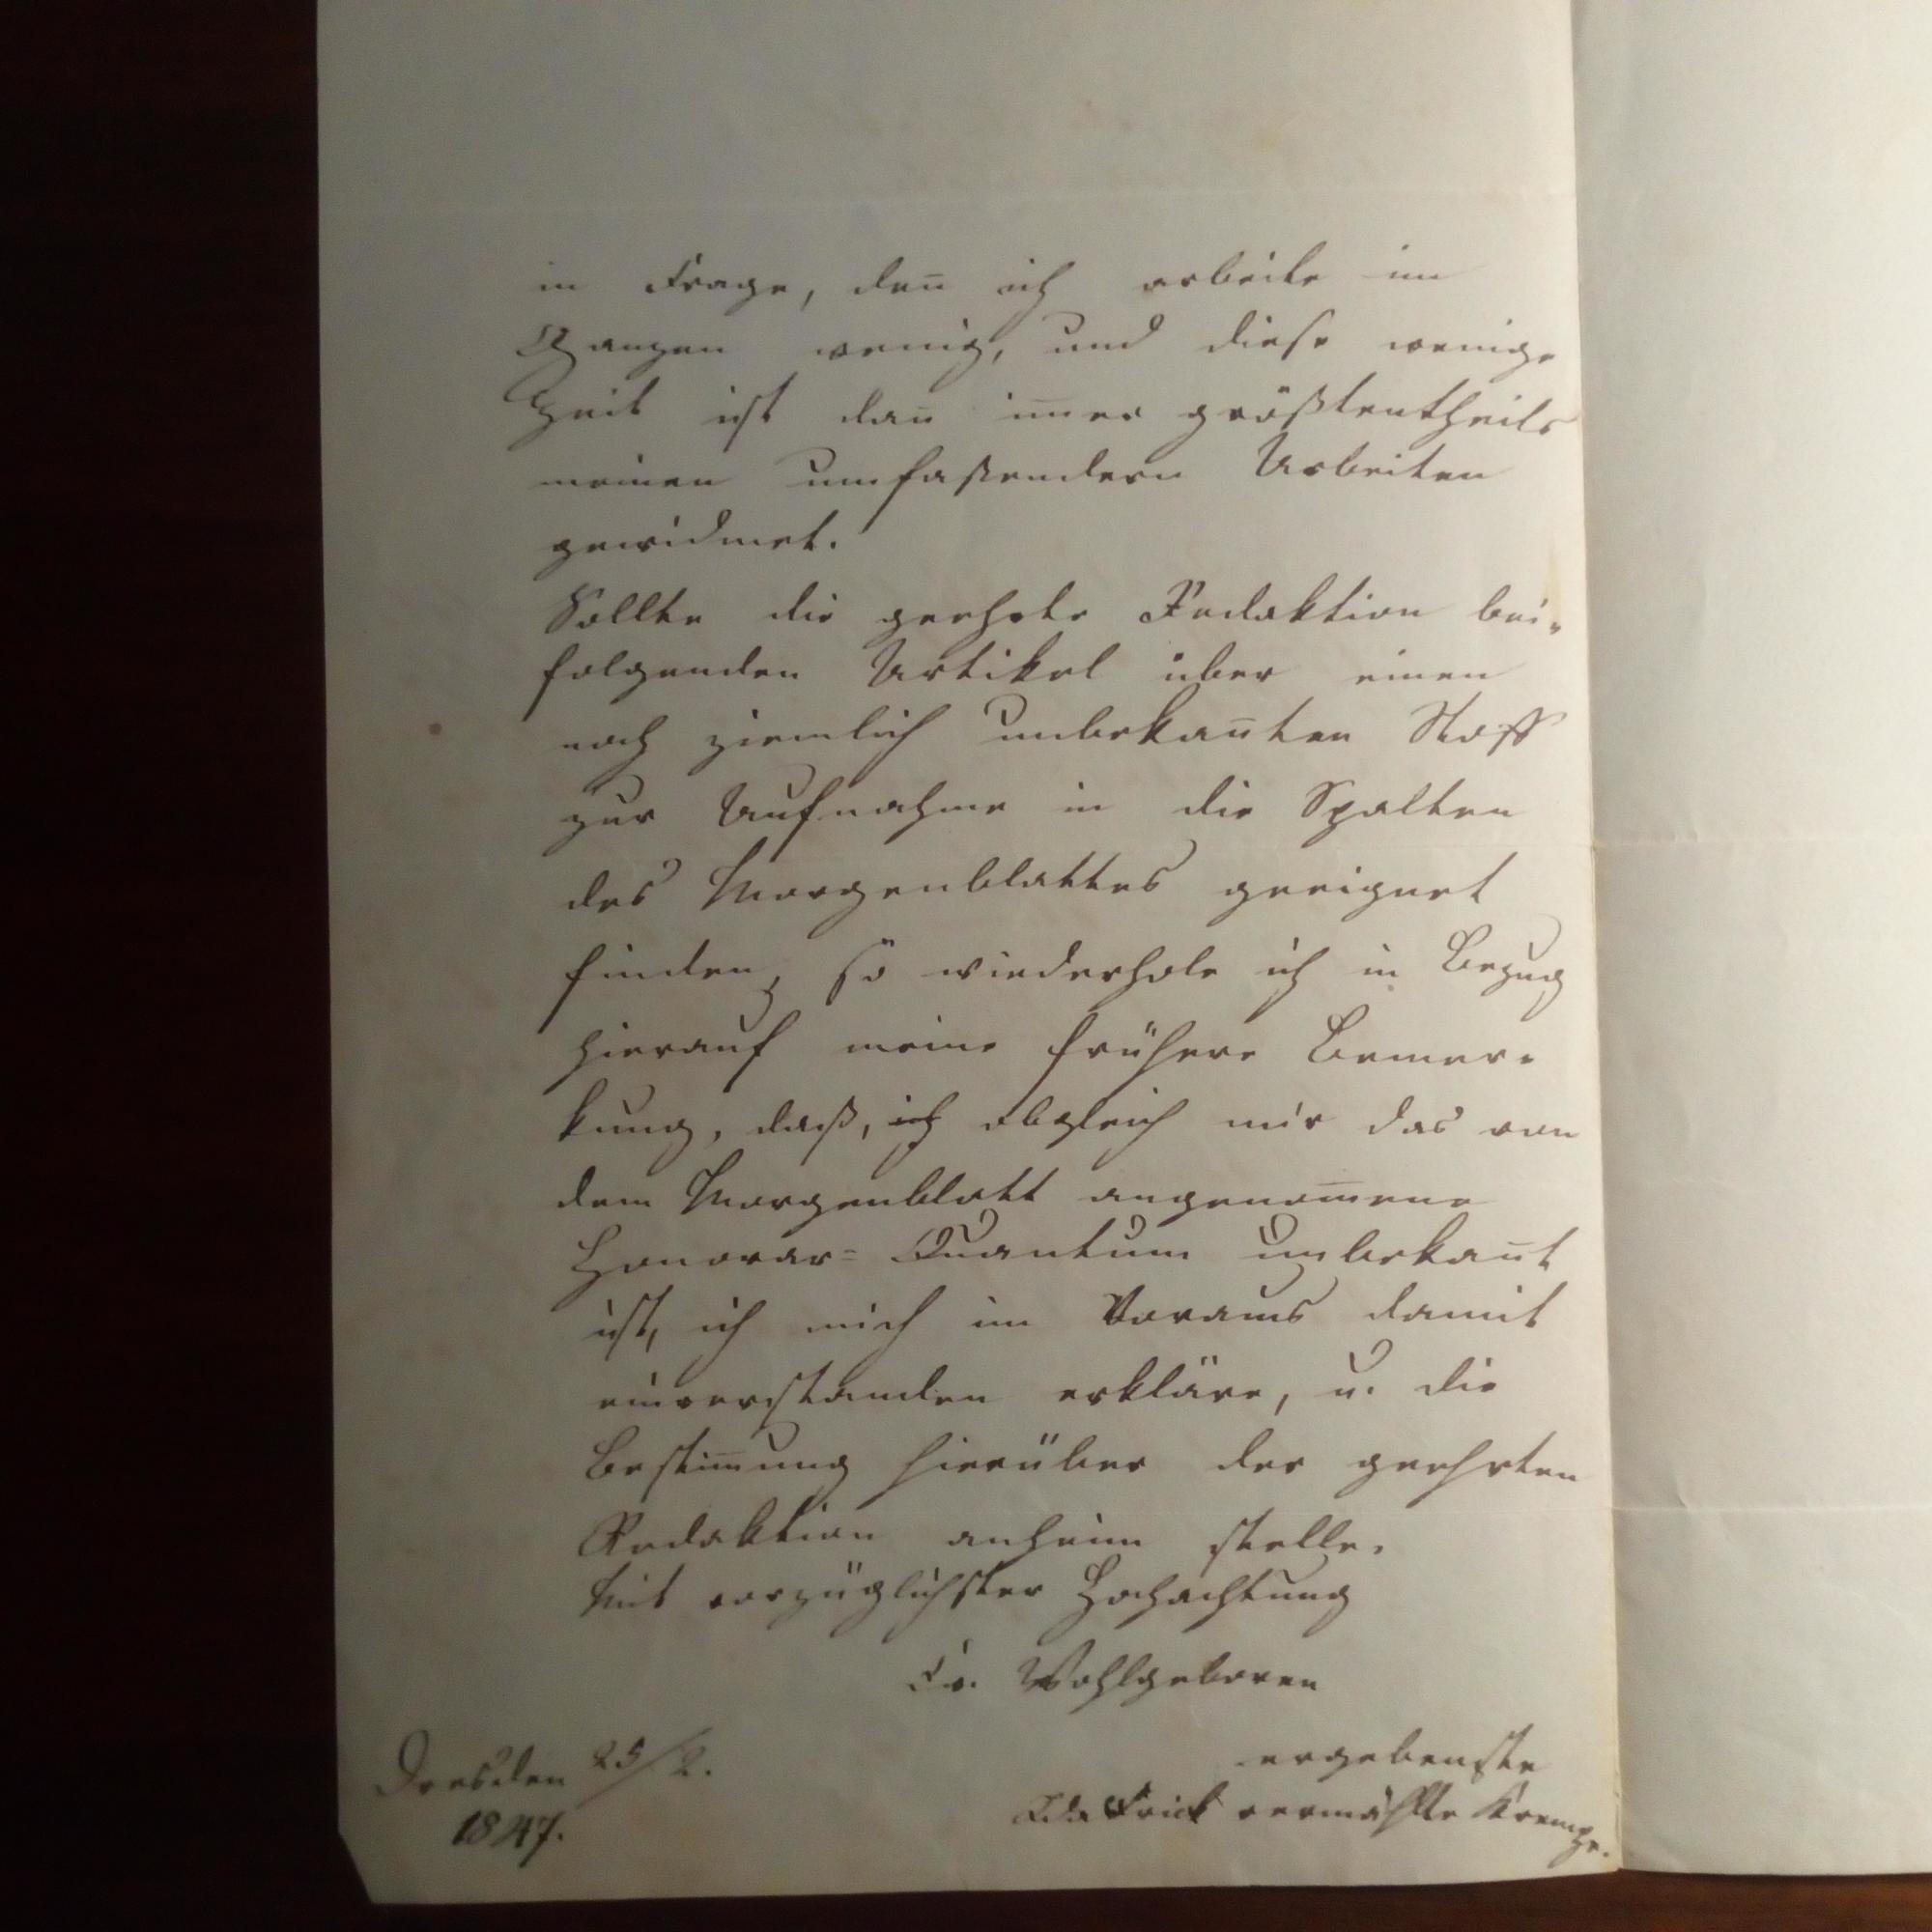 in Frage, den̅ ich arbeite im
Ganzen wenig, und diese wenige
Zeit ist dan̅ im̅er größtentheils
meinen umfaßendern Arbeiten
gewidmet.
Sollte die geehrte Redaktion bei-
folgenden Artikel über einen
noch ziemlich unbekan̅ten Stoff
zur Aufnahme in die Spalten
des Morgenblattes geeignet
finden, so wiederhole ich in Bezug
hierauf meine frühere Bemer-
kung, daß, ich obgleich mir das von
dem Morgenblatt angenom̅ene
Honorar-Quantum unbekan̅t
ist, ich mich im Voraus damit
einverstanden erkläre, u. die
Bestim̅ung hierüber der geehrten
Redaktion anheim stelle.
Mit vorzüglichster Hochachtung
Ew. Wohlgeboren
ergebenste
Ida Frick vermählte Krempe.
Dresden 25/2.
1847.